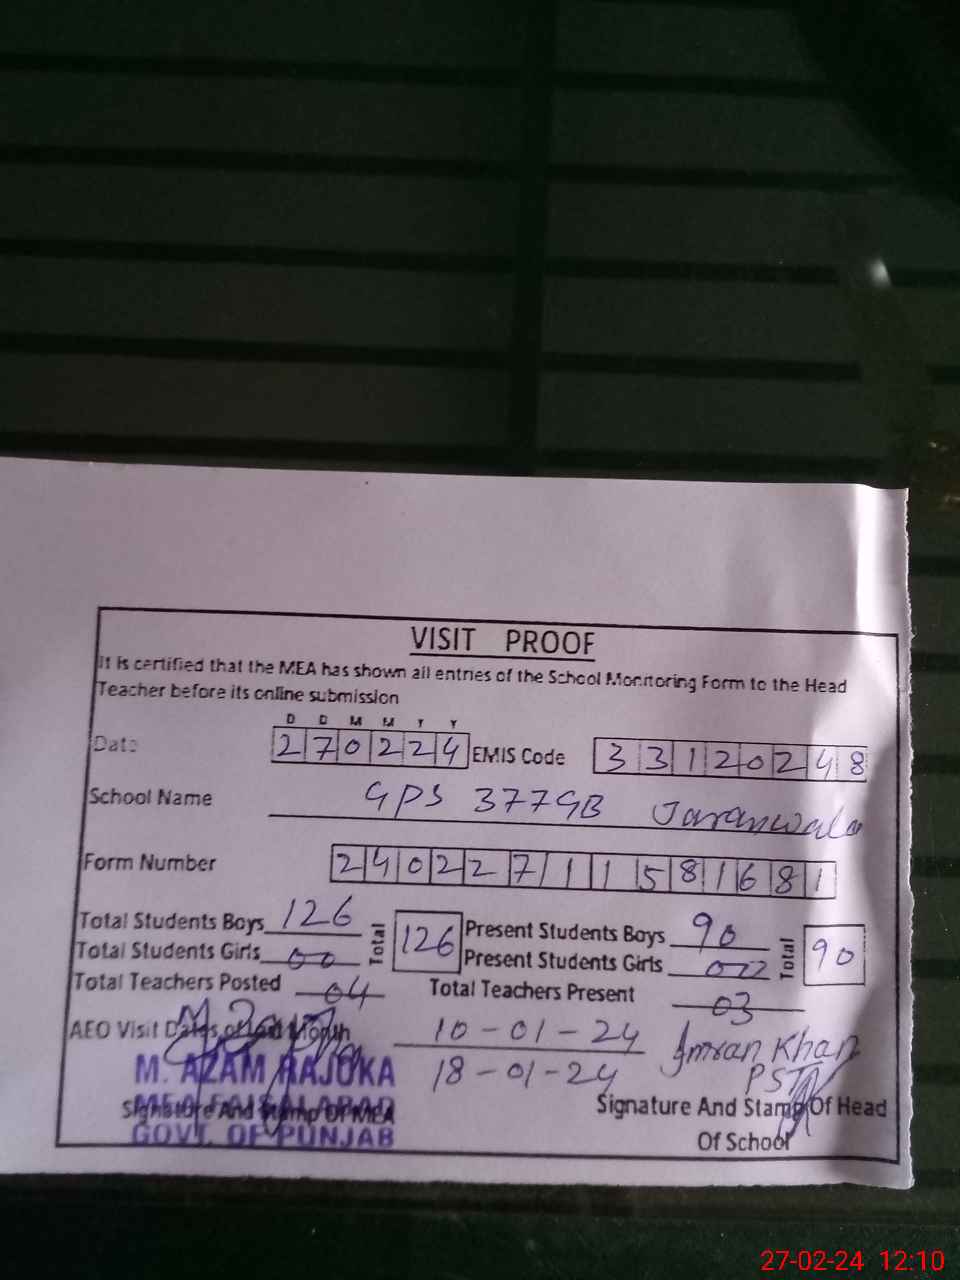 VISIT PROOF
It is certified that the MEA has shown all entries of the School Monitoring Form to the Head
Teacher before its online submission
D D M M Y Y
Date 270224 EMIS Code 33120248
School Name GPS 377GB Jaranwala
Form Number 24022711581681
Total Students Boys 126 Total 126 Present Students Boys 90 Total 90
Total Students Girls 00 Present Students Girls 00
Total Teachers Posted 04 Total Teachers Present 03
AEO Visit Dates of Last Month 10-01-24 Imran Khan
M. AZAM RAJOKA 18-01-24 PST
MEA FAISALABAD
Signature And Stamp Of MEA Signature And Stamp Of Head
GOVT. OF PUNJAB Of School
27-02-24 12:10